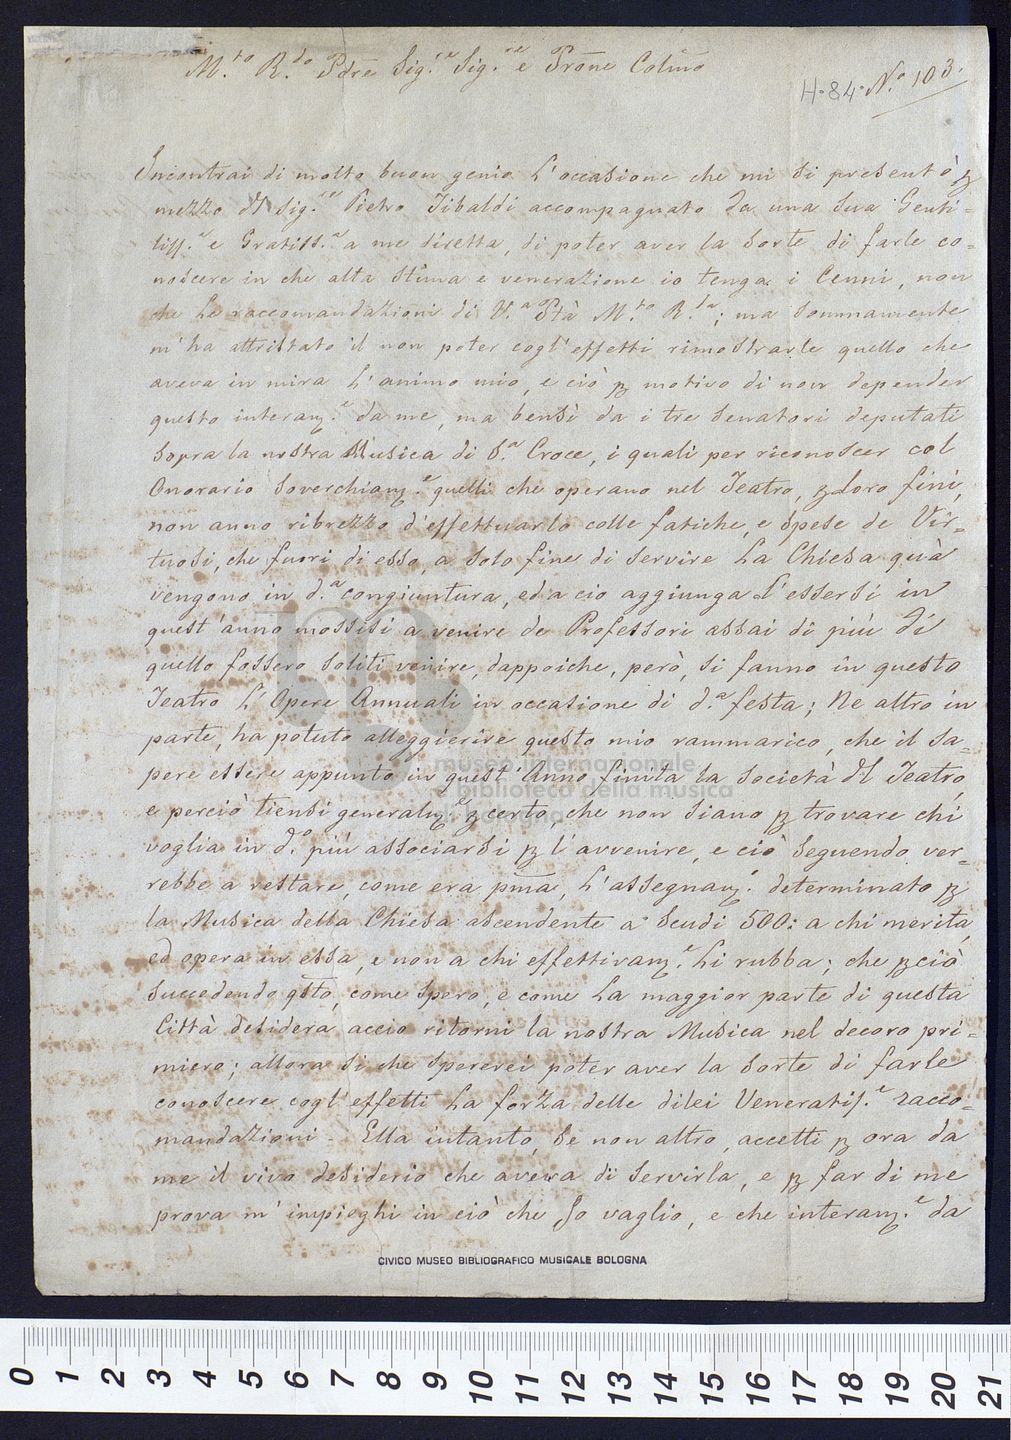 M.to R.do Pdre Sig.re Sig.re e Prone Colmo
H. 84. N.o 103.
Incontrai di molto buon genio l'occasione che mi si presentò p
mezzo dl Sig.re Pietro Tibaldi accompagnato da una sua Genti=
liss.a e Gratiss.a a me diretta, di poter aver la sorte di farle co=
noscere in che alta stima e venerazione io tenga i Cenni, non
che le raccomandazioni di V.a Ptà M.to R.da; ma sommamente
m'ha attristato il non poter cogl'effetti rimostrarle quello che
aveva in mira l'animo mio, e ciò p motivo di non depender
questo interam.e da me, ma bensì da i tre Senatori deputati
sopra la nostra Musica di S.a Croce, i quali per riconoscer col
Onorario soverchiam.e quelli che operano nel Teatro, p loro fini,
non anno ribrezzo d'effettuarlo colle fatiche, e spese de Vir=
tuosi, che fuori di esso, a solo fine di servire la Chiesa quà
vengono in d.a congiuntura, ed a cio aggiunga l'essersi in
quest'anno mossisi a venire de Professori assai di più di
quello fossero soliti venire, dappoiche, però, si fanno in questo
Teatro l'Opere Annuali in occasione di d.a festa; Ne altro in
parte, ha potuto alleggierire questo mio rammarico, che il sa=
pere essere appunto in quest'Anno finita la società dl Teatro,
e perciò tiensi generalm.e p certo, che non siano p trovare chi
voglia in d.o più associarsi p l'avvenire, e ciò seguendo ver=
rebbe a restare, come era pma, l'assegnam.o determinato p
la Musica della Chiesa ascendente a Scudi 500: a chi merita,
ed opera in essa, e non a chi effettivam.e li rubba; che p ciò
succedendo qsto, come spero, e come la maggior parte di questa
Città desidera, accio ritorni la nostra Musica nel decoro pri=
miero; allora si che spererei poter aver la sorte di farle
conoscere cogl'effetti la forza delle dilei Veneratis.e racco=
mandazioni. Ella intanto, se non altro, accetti p ora da
me il vivo desiderio che aveva di servirla, e p far di me
prova m'impieghi in ciò che Io vaglio, e che interam.e da
CIVICO MUSEO BIBLIOGRAFICO MUSICALE BOLOGNA
museo internazionale
e biblioteca della musica
di bologna
0 1 2 3 4 5 6 7 8 9 10 11 12 13 14 15 16 17 18 19 20 21